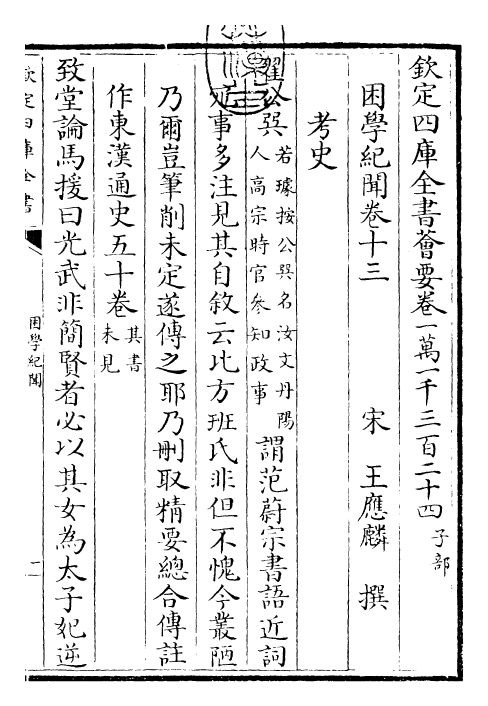 欽定四庫全書薈要卷一萬一千三百二十四子部
困學紀聞卷十三
宋 王應麟 撰
考史
翟公巽若璩按公巽名汝文丹陽人高宗時官叅知政事謂范蔚宗書語近詞
冗事多注見其自敘云比方班氏非但不愧今叢陋
乃爾豈筆削未定遂傳之耶乃刪取精要總合傳註
作東漢通史五十卷其書未見
致堂論馬援曰光武非簡賢者必以其女為太子妃逆
欽定四庫全書
困學紀聞